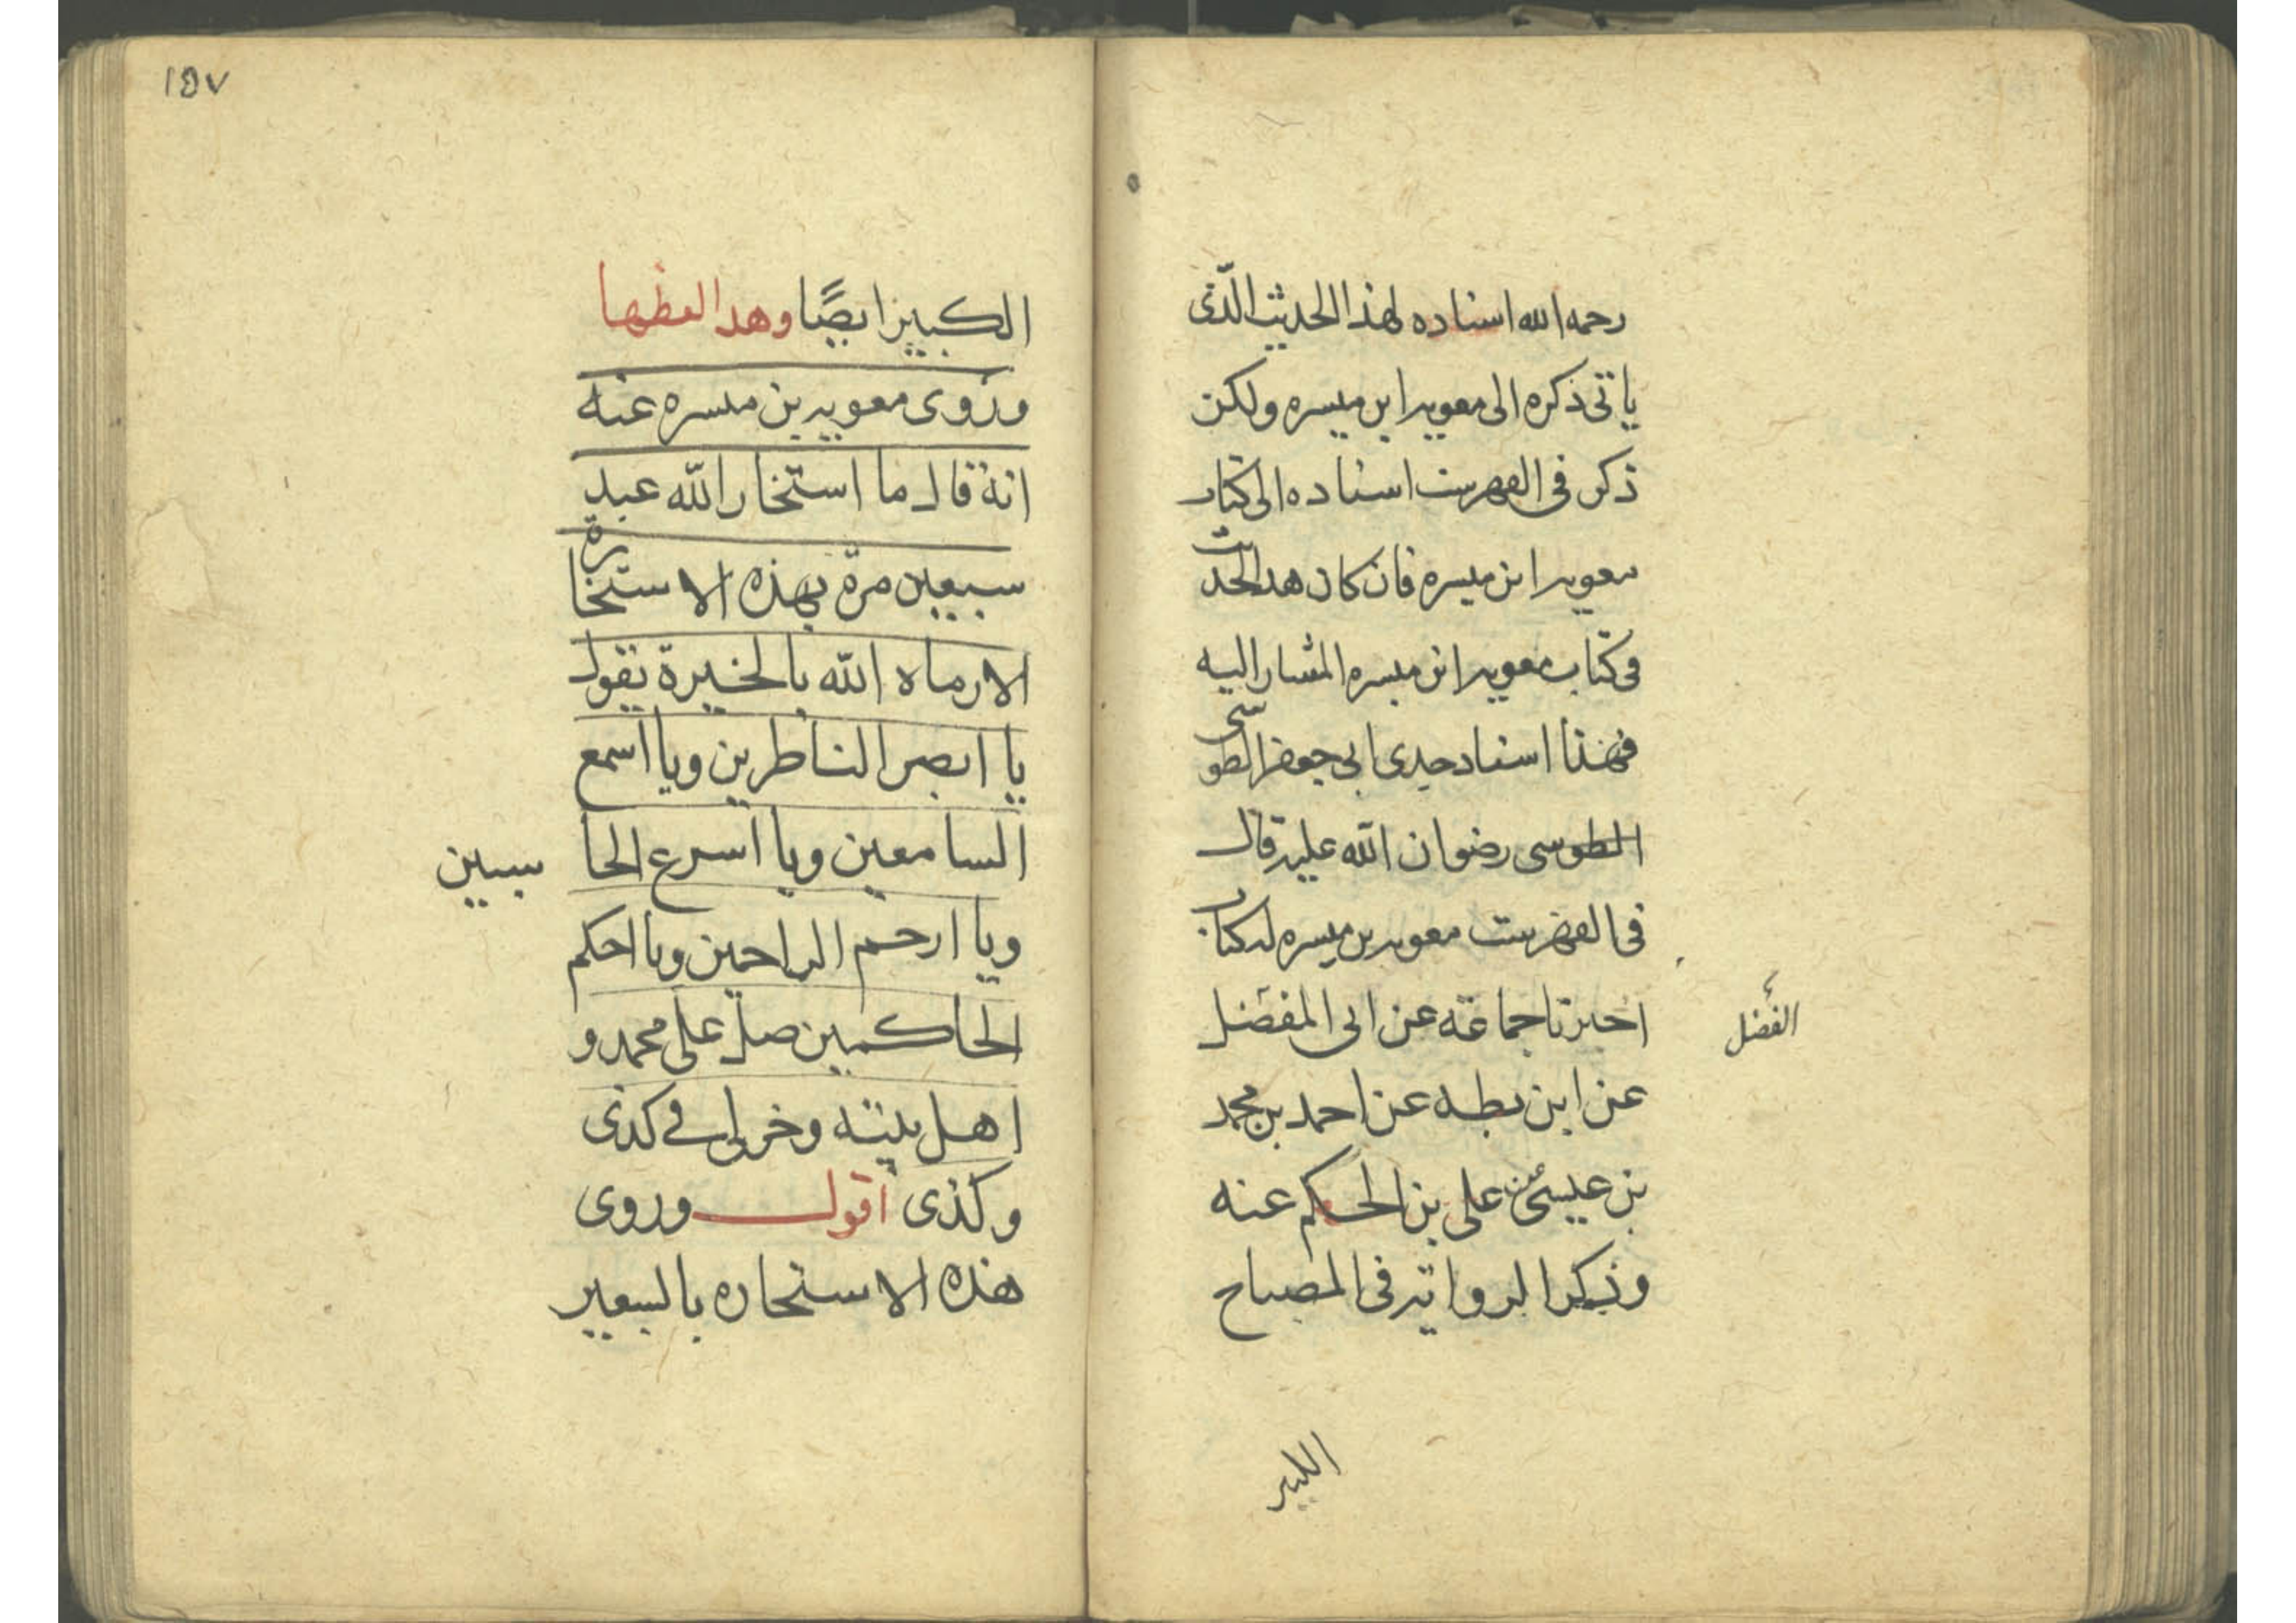 رحمه الله اسناده لهذا الحديث الّذى
ياتى ذكره الى معويه ابن ميسره ولكن
ذكر فى الفهرست اسناده الى كتاب
معويه ابن ميسره فان كان هذا الحديث
فى كتاب معويه ابن ميسره المشار اليه
فهذا اسناد جدى ابى جعفر الطوسى
الطوسى رضوان الله عليه قال
فى الفهرست معويه بن ميسره له كتاب
اخبرنا جماعة عن ابى المفضل
الفضل
عن ابن بطه عن احمد بن محمد
بن عيسى عن على بن الحكم عنه
وذكر الرواية فى المصباح
الكبير
١٥٧
الكبير ايضًا وهذا لفظها
وروى معويه بن ميسره عنه
انه قال ما استخار الله عبد
سبعين مرة بهذه الاستخارة
الا رماه الله بالخيرة يقول
يا ابصر الناظرين ويا اسمع
السامعين ويا اسرع الحا سبين
ويا ارحم الراحمين ويا احكم
الحاكمين صل على محمد و
اهل بيته وخر لى فى كذى
وكذى اقول وروى
هذه الاستخاره